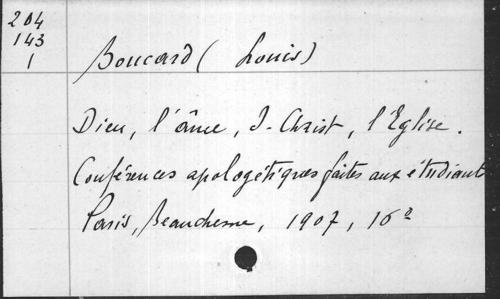 204
143
1
Boucard (Louis)
Dieu, l'âme, J-Christ, l'Eglise.
Conférences apologétiques faites aux étudiant
Paris, Beauchesne, 1907, 16°